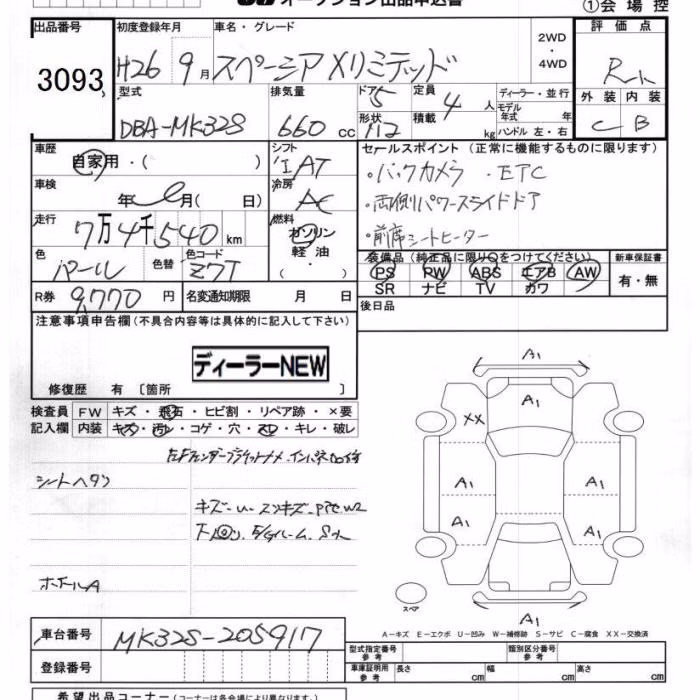 オークション出品申込書
①会場控
出品番号 初度登録年月 車名・グレード 2WD ・ 4WD 評価点
3093 H26 9月 スペーシア Xリミテッド
型式 排気量 ドア 5 定員 4人 ディーラー・並行 外装 内装
DBA-MK32S 660 cc 形状 積載 kg モデル年式 年 ハンドル 左・右 C B
車歴 シフト セールスポイント (正常に機能するものに限ります)
自家用・( ) IAT ・バックカメラ ・ETC
車検 年 月( 日) 冷房 AC ・両側パワースライドドア
走行 7万4千540km 燃料 ガソリン・軽油・( ) ・前席シートヒーター
色 パール 色替 色コード Z7T
装備品 (純正品に限り○をつけてください) 新車保証書
PS PW ABS エアB AW 有・無
SR ナビ TV カワ
R券 9,770円 名変通知期限 月 日 後日品
注意事項申告欄(不具合内容等は具体的に記入して下さい)
ディーラーNEW
修復歴 有 [箇所 ]
検査員 FW キズ・飛石・ヒビ割・リペア跡・×要
記入欄 内装 キズ・汚レ・コゲ・穴・スレ・キレ・破レ
シートヘタリ
キズ-U-
A1
A1
XX
A1 A1
A1 A1
スペア
A1
A-キズ E-エクボ U-凹み W-補修跡 S-サビ C-腐食 XX-交換済
車台番号 MK32S-205917
型式指定番号 参考 類別区分番号 参考
登録番号 車庫証明用 参考 長さ cm 幅 cm 高さ cm
希望出品コーナー(コーナーは各会場により異なります。)